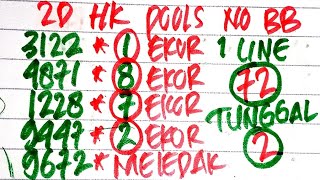 2D HK POOLS NO BB
3122 * 1 EKOR 1 LINE
4871 * 8 EKOR 72
1228 * 7 EKOR TUNGGAL
9447 * 2 EKOR 2
9672 * MELEDAK